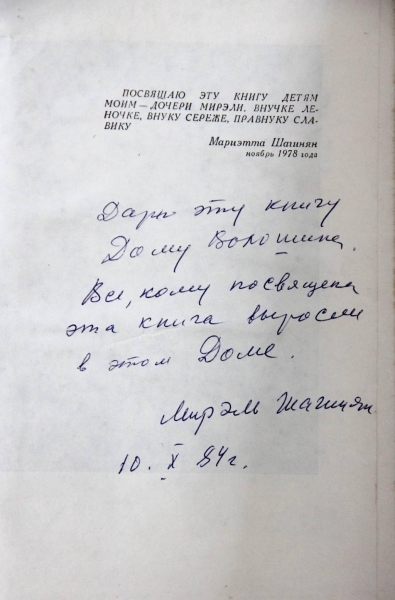 ПОСВЯЩАЮ ЭТУ КНИГУ ДЕТЯМ
МОИМ — ДОЧЕРИ МИРЭЛИ, ВНУЧКЕ ЛЕ-
НОЧКЕ, ВНУКУ СЕРЕЖЕ, ПРАВНУКУ СЛА-
ВИКУ
Мариэтта Шагинян
ноябрь 1978 года
Дарю эту книгу
Дому Волошина.
Все, кому посвящена
эта книга выросли
в этом Доме.
Мирэль Шагинян
10. X 84 г.